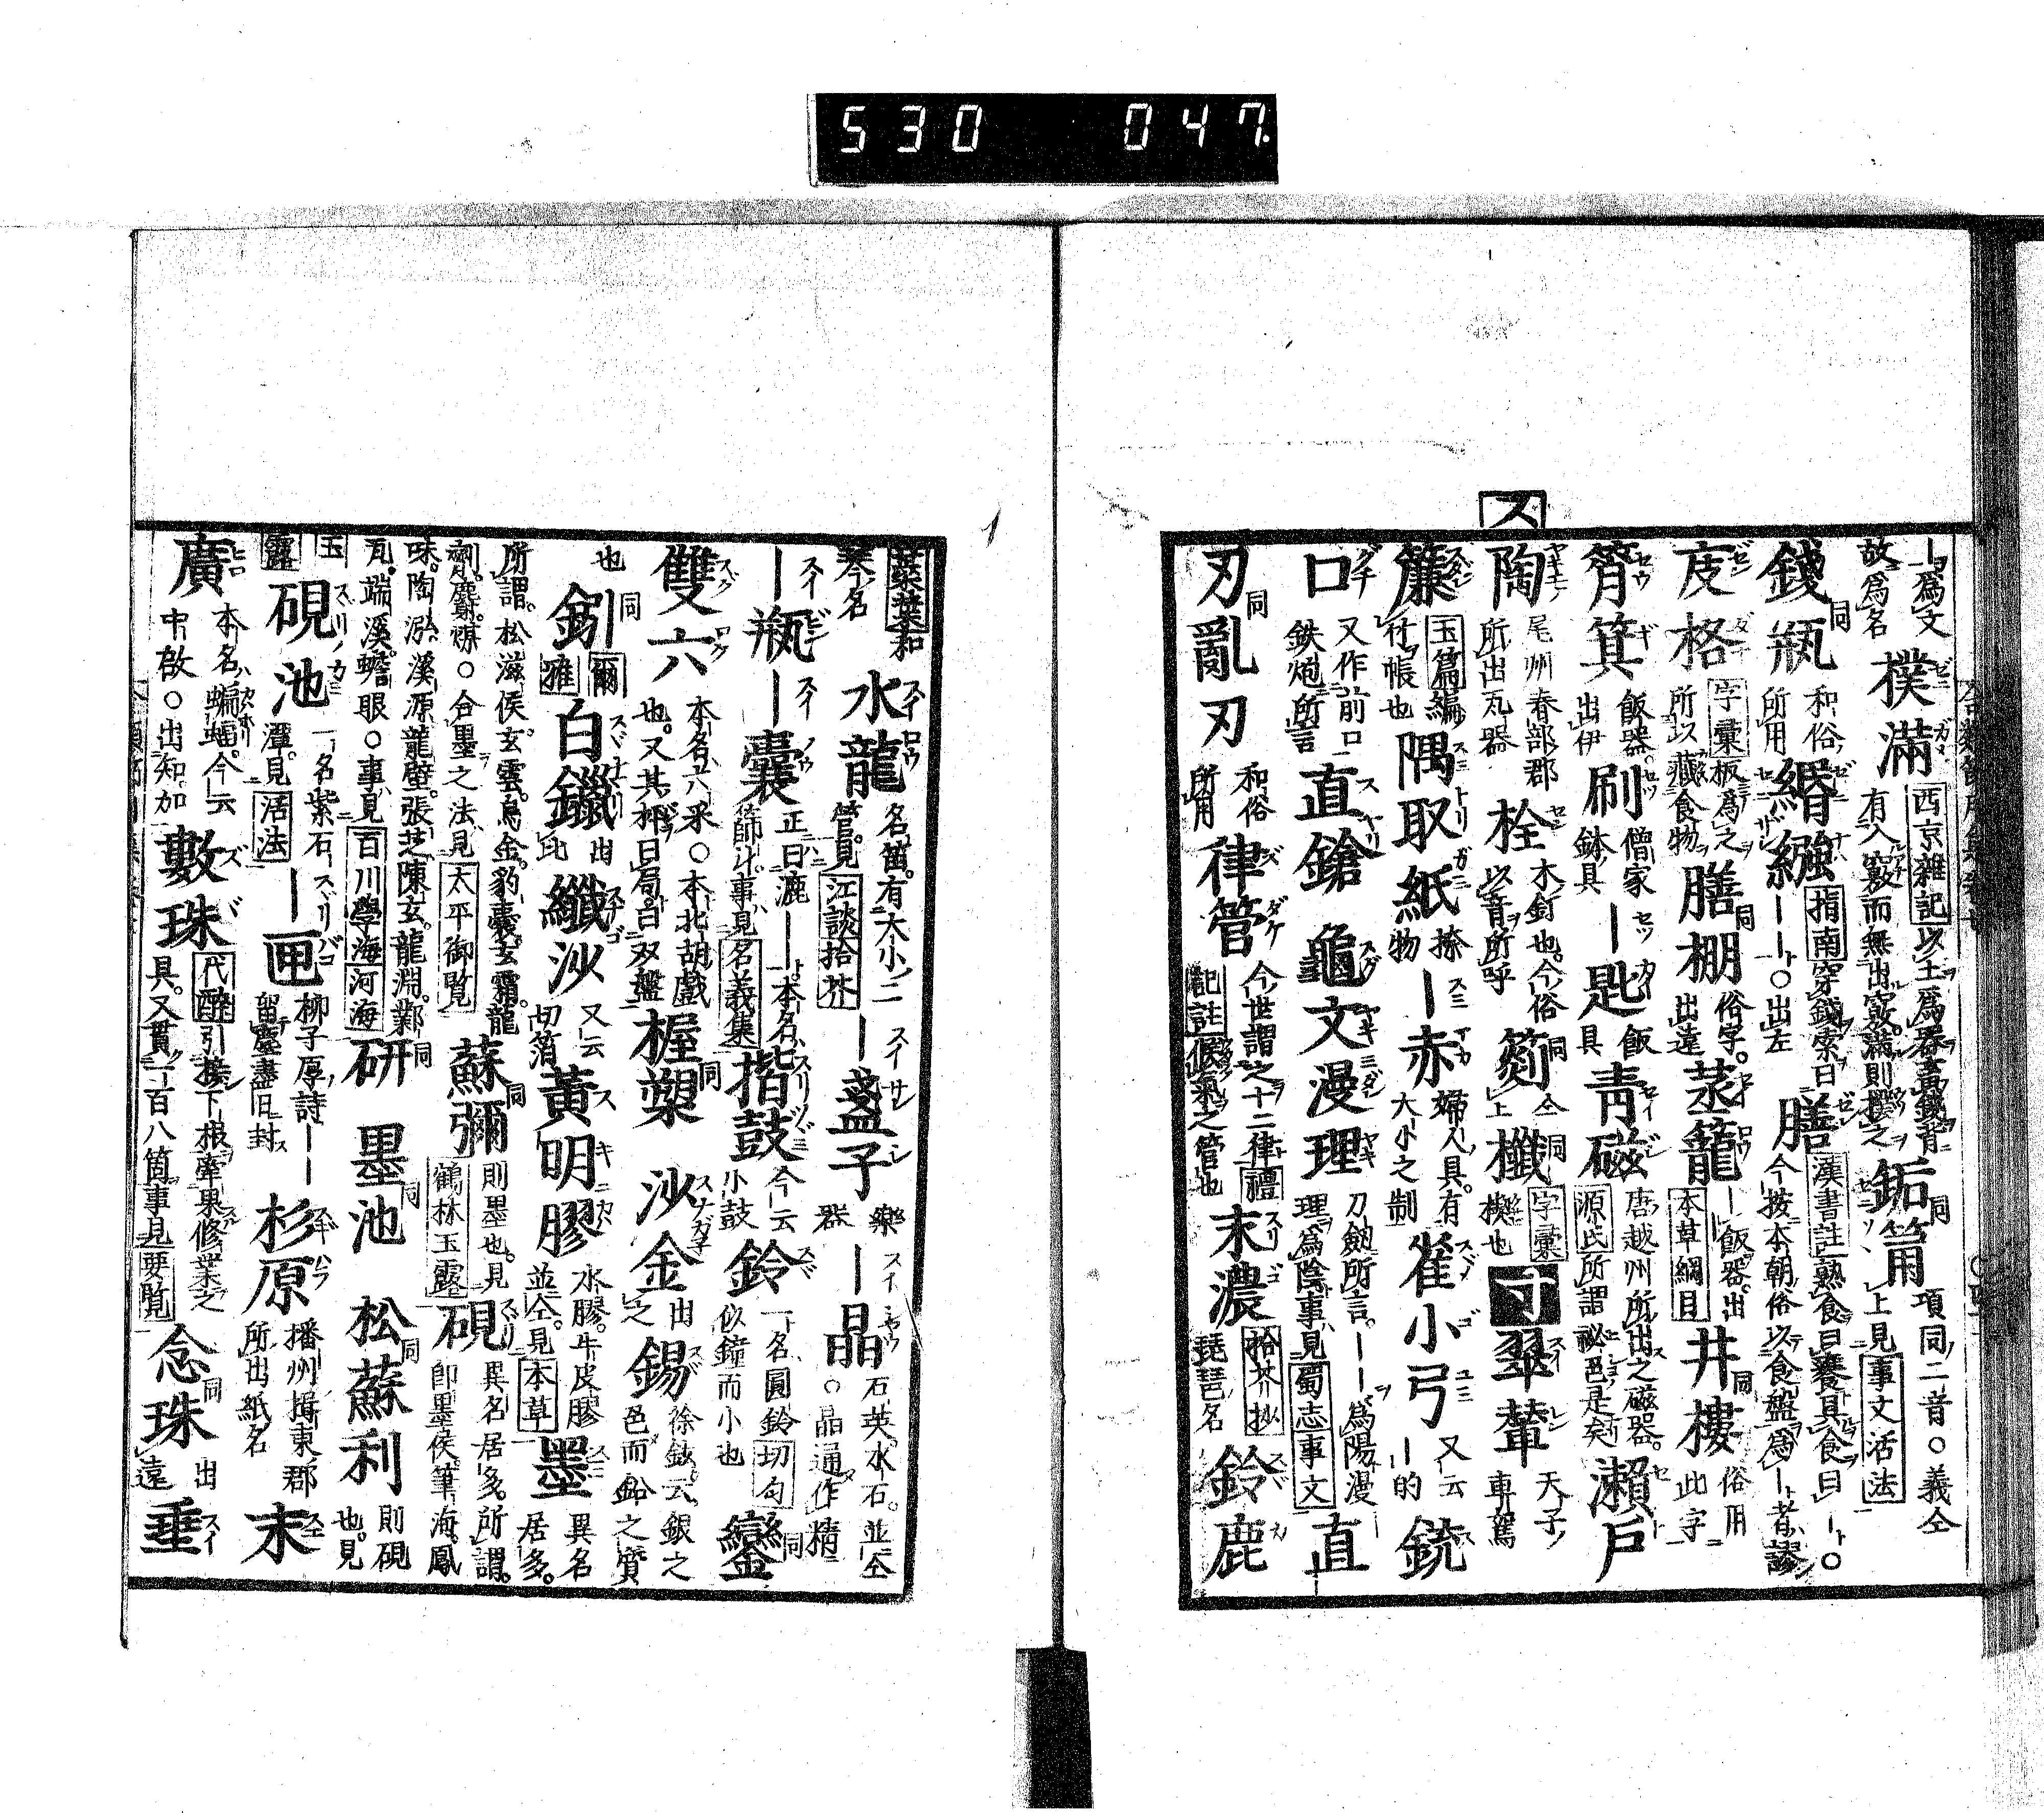 530 047.
ス
一爲文故爲名 樸滿 西京雜記以土爲器畜錢背有入竅而無出竅滿則撲之 缿筩 項同二音○義仝上見事文活法
錢瓶 和俗所用 緡繦 指南穿錢索曰一一○出左 膳 漢書註熟食曰饔具食曰一○今按本朝俗以食盤爲一者謬
庋格 字彙板爲之所以藏食物 膳棚 俗字出遠 蒸籠 一飯器出本草綱目 井樓 俗用此字
筲箕 飯器出伊 刷 僧家鉢具 一匙 飯具 青磁 唐越州所出之磁器源氏所謂祕色是矣 瀬戸
陶 尾州春部郡所出瓦器 栓 木釘也今俗以音所呼 仝上 櫼 字彙楔也 寸 翠輦 天子車駕
簾 玉篇編竹帳也 隅取紙 捺物 一赤 婦人具有大小之制 雀小弓 又云一的 銃
口 又作前口鉄炮所言 直鎗 龜文漫理 刀劔所言一一爲陽漫理爲陰事見蜀志事文 直
刃 亂刃 和俗所用 律管 今世謂之十二律禮記註候氣之管也 末濃 拾芥抄琵琶名 鈴鹿
葉和琴名 水龍 名笛有大小二管見江談拾芥 一盞子 樂器 一晶 石英水石並仝○晶通作精
一瓶 一嚢 正曰漉一一本名篩斗事見名義集 揩鼓 今云小鼓 鈴 一名圓鈴切句似鐘而小也 鑾
雙六 本名六采○本北胡戲也又其枰曰局百双盤 楃槊 沙金 出之 錫 徐鉉云銀之色而鉛之質
也 釰 爾雅 白鑞 出 纖沙 又云切箔 黃明膠 水膠牛皮膠並仝見本草 墨 異名居多
所謂松滋侯玄雲烏金豹嚢玄霜龍劑麝煤○合墨之法見太平御覧 蘇彌 則墨也見鶴林玉露 硯 異名居多所謂即墨侯筆海鳳
味陶泓溪源龍壁張芝陳玄龍淵鄴瓦端溪蟾眼○事見百川學海河海 研 墨池 松蘇利 則硯也見
玉露 硯池 一名紫石潭見活法 一匣 柳子厚詩一一留塵盡日封 杉原 播州揖東郡所出紙名 末
廣 本名蝙蝠今云中啟○出知加 數珠 代醉引接下根牽果修業之具又貫一百八箇事見要覧 念珠 出遠 垂